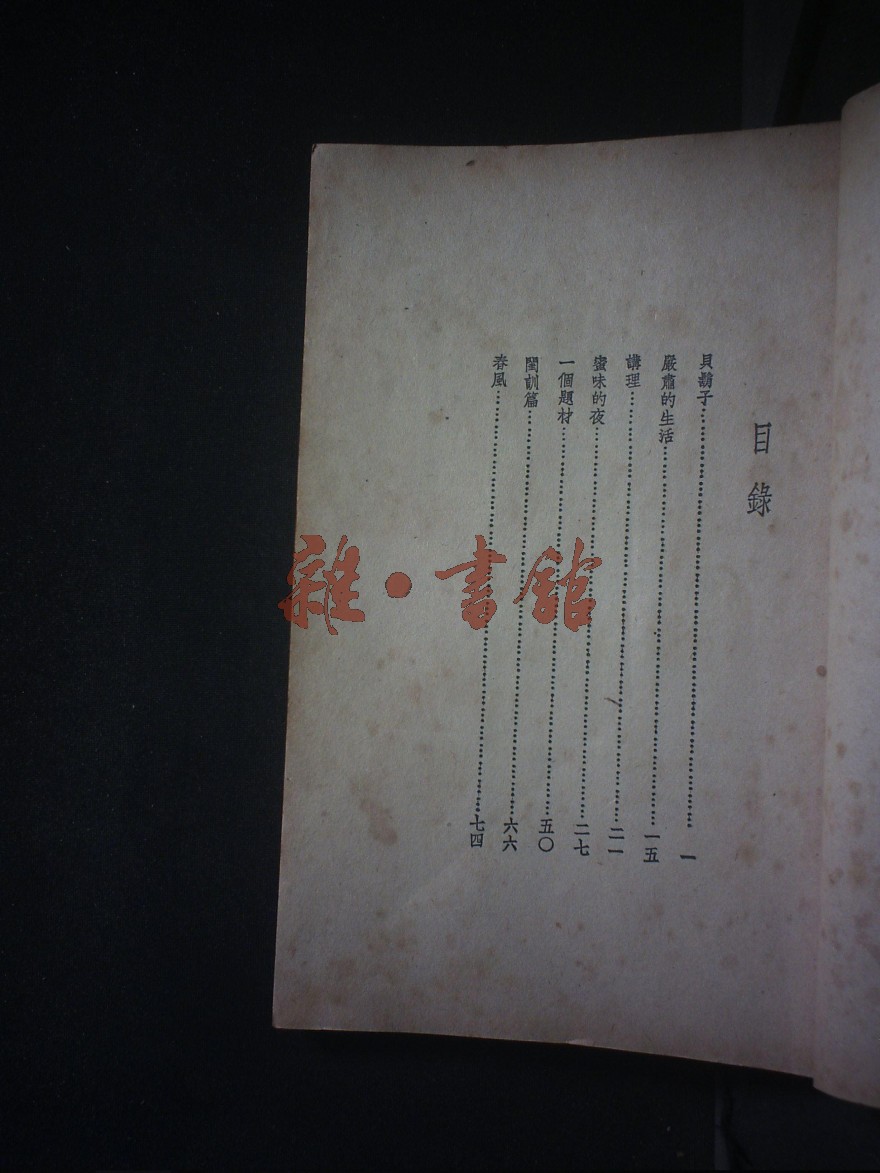 目錄
貝鬍子……一
嚴肅的生活……一五
講理……二一
蜜味的夜……二七
一個題材……五〇
閨訓篇……六六
春風……七四
雜·書館